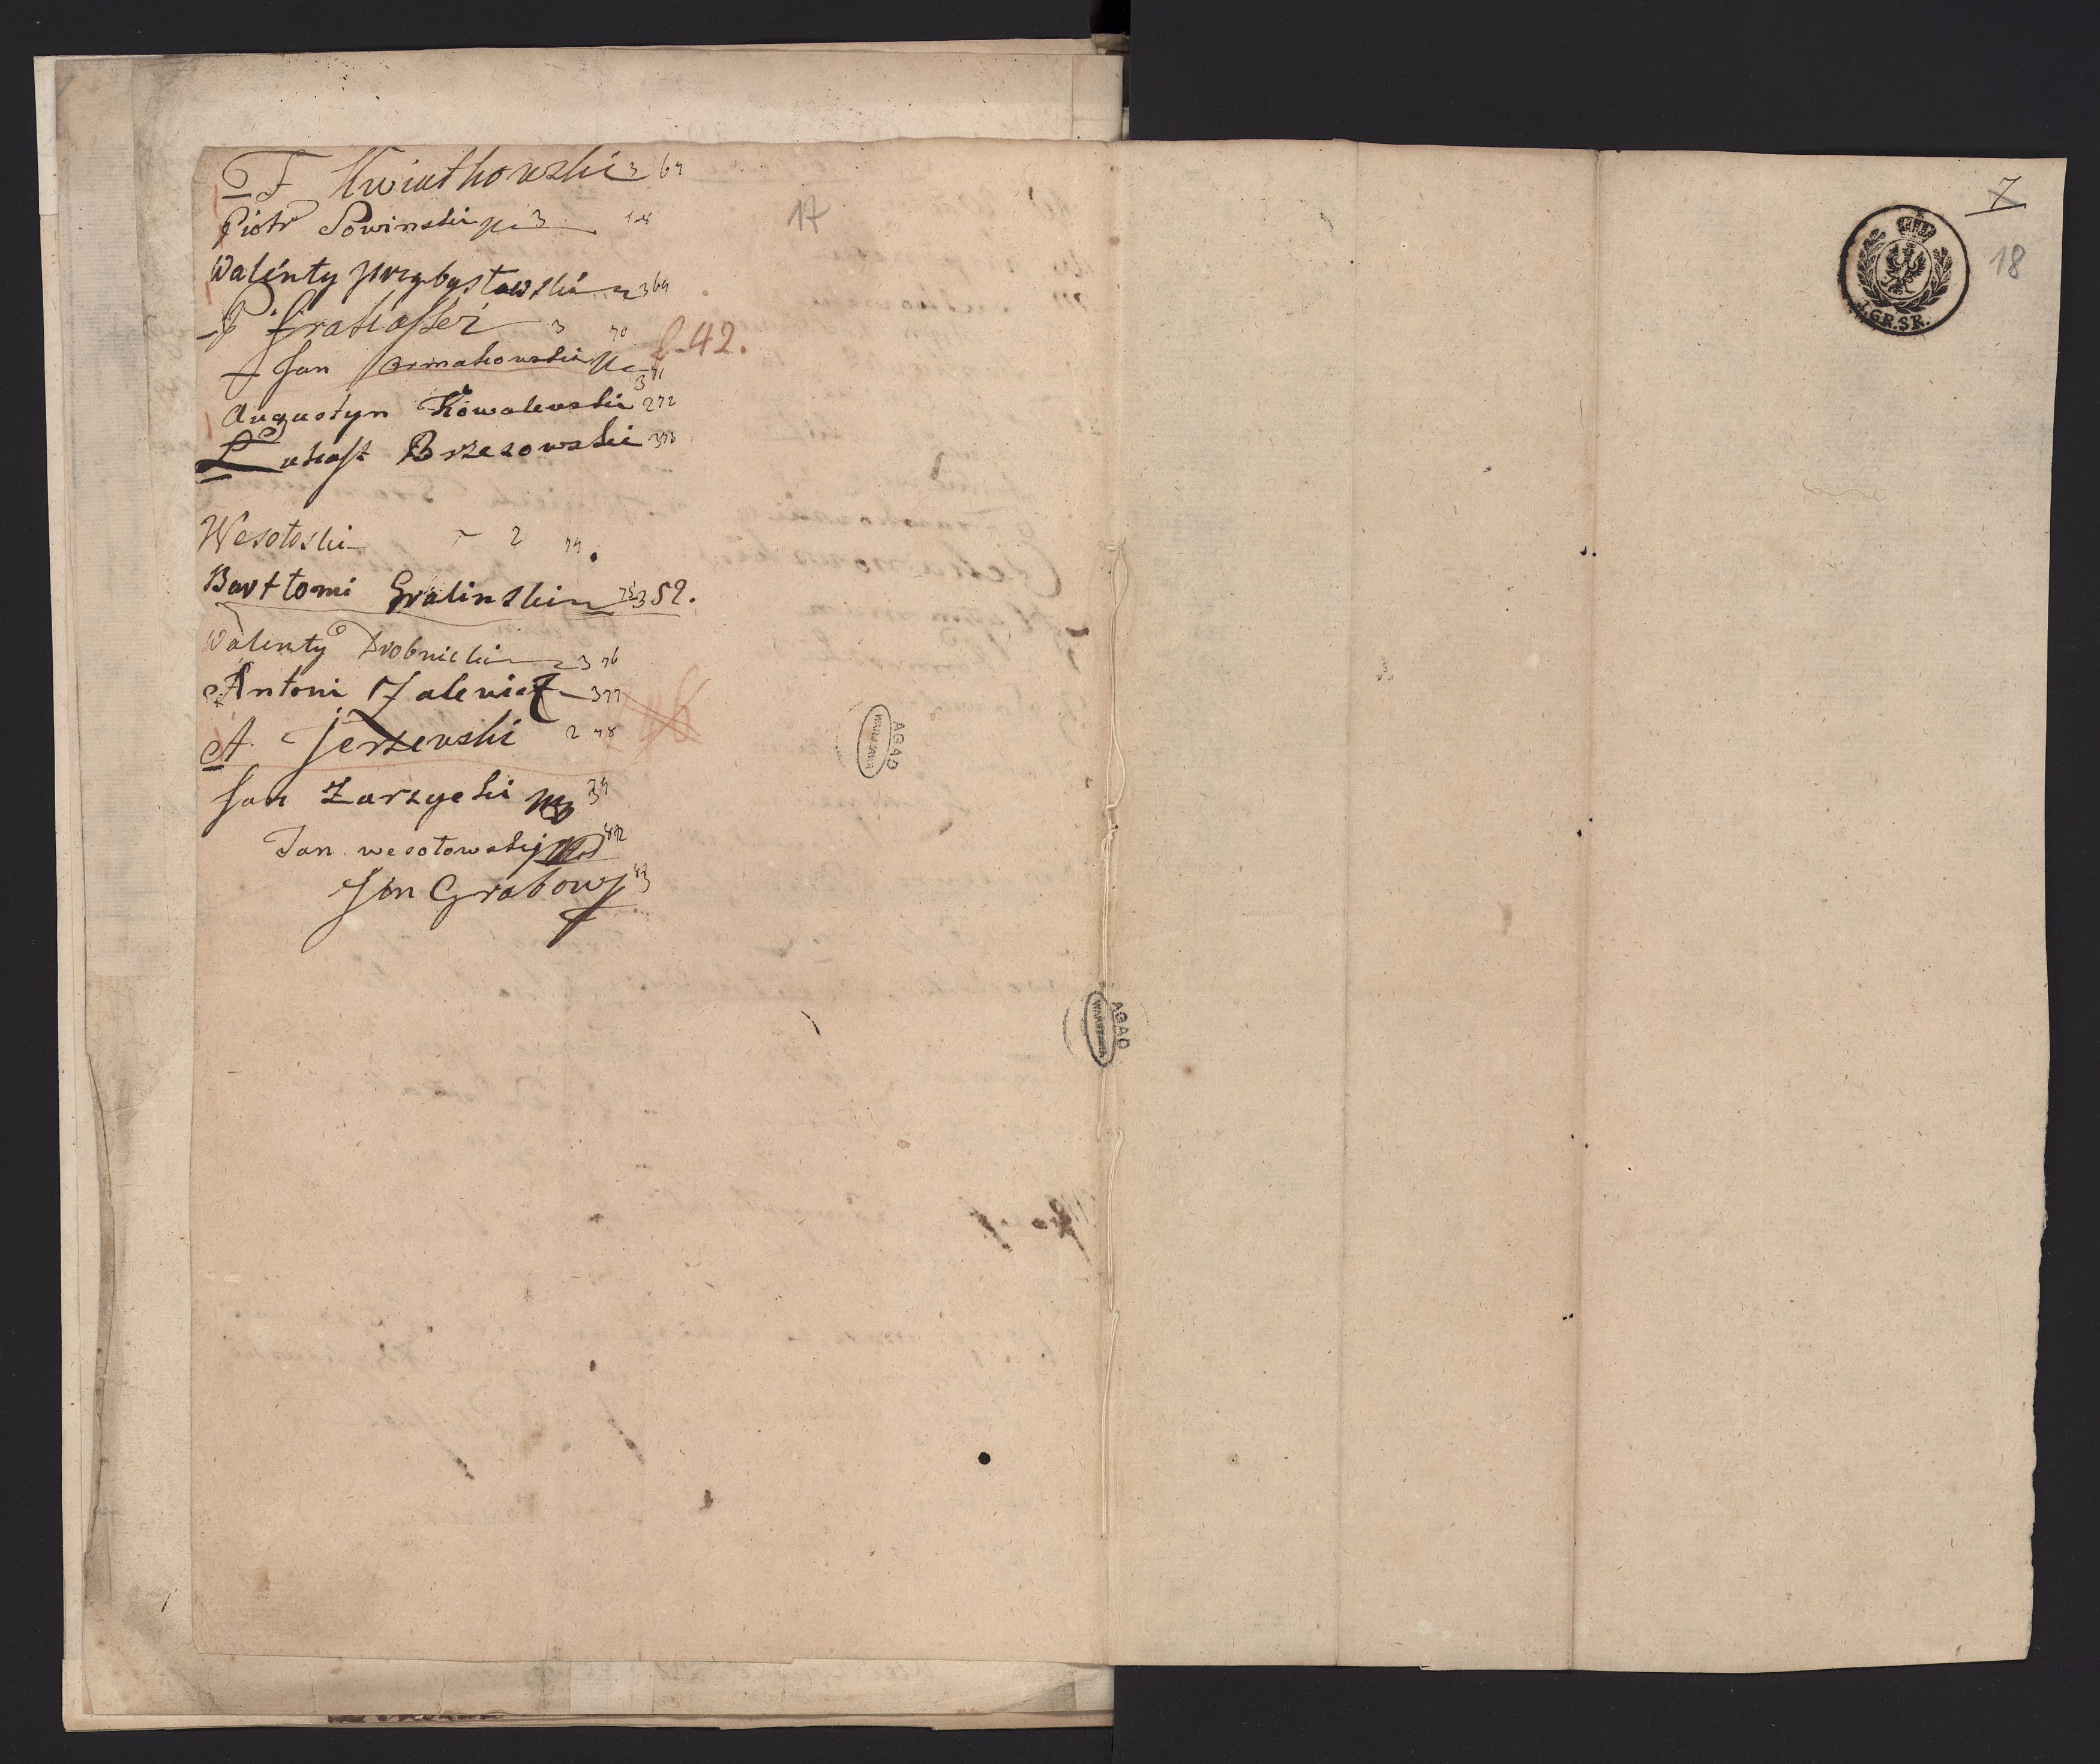 F Kwiatkowski 3 69
Piotr Sowinski 3
Walenty przybystowski 369
17
P Grakasser 3 70
f. 42.
Jan
371
Augustyn Kowalewski 272
Lukasz Brzezowski 373
Wesotoski 2 74.
Barttomi Gralinski 75 3 52.
Walenty Drobnicki 3 76
Antoni Zalewicz 377
A. Jerzewski 2 78
Jan Zarzycki
Jan wesotowskij
Jan Grabows
AGAD
WARSZAWA
AGAD
WARSZAWA
7
18
GR.SR.